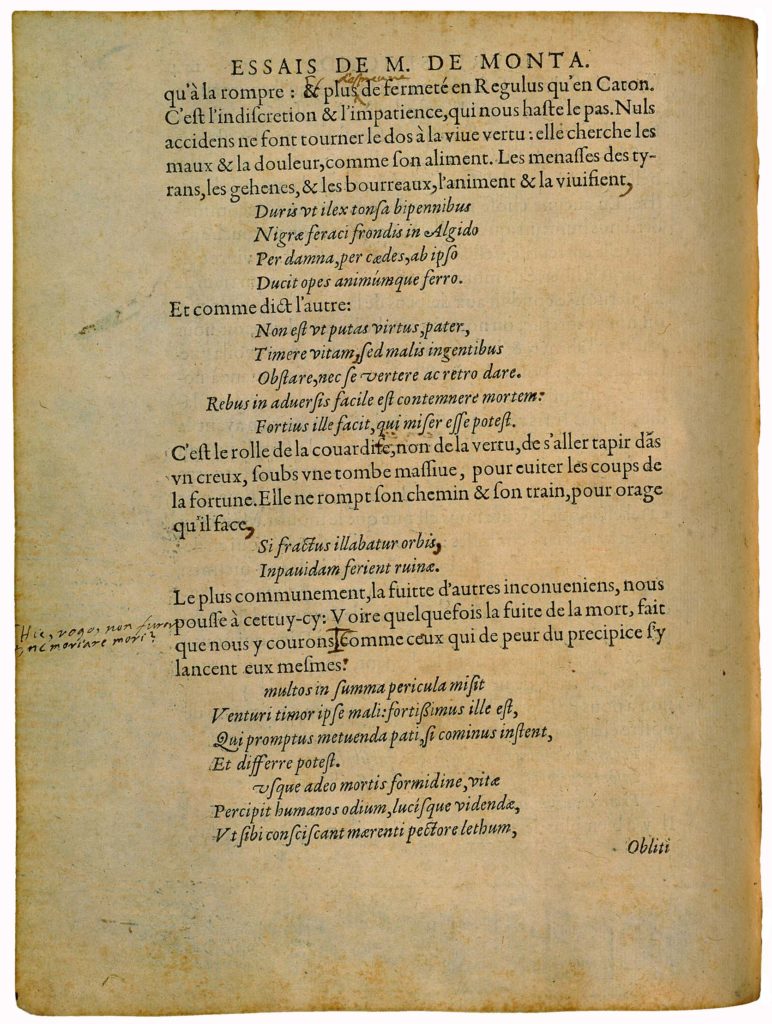 ESSAIS DE M. DE MONTA.
qu'à la rompre : & plus de fermeté en Regulus qu'en Caton.
C'eſt l'indiſcretion & l'impatience, qui nous haſte le pas. Nuls
accidens ne font tourner le dos à la viue vertu : elle cherche les
maux & la douleur, comme ſon aliment. Les menaſſes des ty-
rans, les gehenes, & les bourreaux, l'animent & la viuifient,
Duris vt ilex tonſa bipennibus
Nigræ feraci frondis in Algido
Per damna, per cædes, ab ipſo
Ducit opes animúmque ferro.
Et comme dict l'autre:
Non eſt vt putas virtus, pater,
Timere vitam, ſed malis ingentibus
Obſtare, nec ſe vertere ac retro dare.
Rebus in aduerſis facile eſt contemnere mortem:
Fortius ille facit, qui miſer eſſe poteſt.
C'eſt le rolle de la couardiſe, non de la vertu, de s'aller tapir dãs
vn creux, ſoubs vne tombe maſſiue, pour euiter les coups de
la fortune. Elle ne rompt ſon chemin & ſon train, pour orage
qu'il face,
Si fractus illabatur orbis,
Inpauidam ferient ruinæ.
Le plus communement, la fuitte d'autres inconueniens, nous
pouſſe à cettuy-cy: Voire quelquefois la fuite de la mort, fait
Hic, rogo, non furor
que nous y courons comme ceux qui de peur du precipice s'y
est, ne moriare mori?
lancent eux meſmes:
multos in ſumma pericula miſit
Venturi timor ipſe mali: fortißimus ille eſt,
Qui promptus metuenda pati, ſi cominus inſtent,
Et differre poteſt.
vſque adeo mortis formidine, vitæ
Percipit humanos odium, luciſque videndæ,
Vt ſibi conſciſcant mærenti pectore lethum,
Obliti